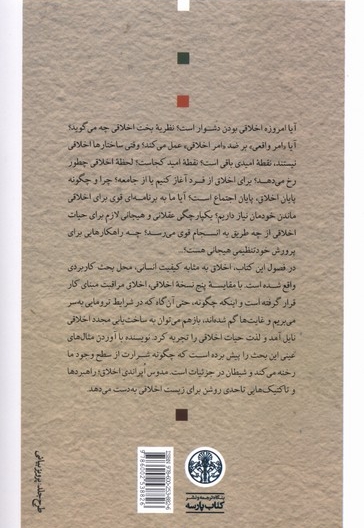 آیا امروزه اخلاقی بودن دشوار است؟ نظریهٔ بخت اخلاقی چه می‌گوید؟
آیا «امر واقعی» بر ضد «امر اخلاقی» عمل می‌کند؟ وقتی ساختارها اخلاقی
نیستند، نقطهٔ امیدی باقی است؟ نقطهٔ امید کجاست؟ لحظهٔ اخلاقی چطور
رخ می‌دهد؟ برای اخلاق از فرد آغاز کنیم یا از جامعه؟ چرا و چگونه
پایان اخلاق، پایان اجتماع است؟ آیا ما به برنامه‌ای قوی برای اخلاقی
ماندن خودمان نیاز داریم؟ یکپارچگی عقلانی و هیجانی لازم برای حیات
اخلاقی از چه طریق به انسجام قوی می‌رسد؟ چه راهکارهایی برای
پرورش خودتنظیمی هیجانی هست؟
در فصول این کتاب، اخلاق به مثابه کیفیت انسانی، محل بحث کاربردی
واقع شده است. با مقایسهٔ پنج نسخهٔ اخلاقی، اخلاق مراقبت مبنای کار
قرار گرفته است و اینکه چگونه، حتی آن‌گاه که در شرایط نرومایی به‌سر
می‌بریم و غایت‌ها گم شده‌اند، بازهم می‌توان به ساخت‌یابی مجدد اخلاقی
نایل آمد و لذت حیات اخلاقی را تجربه کرد. نویسنده با آوردن مثال‌های
عینی این بحث را پیش برده است که چگونه شرارت از سطح وجود ما
رخنه می‌کند و شیطان در جزئیات است. مدوس اُپراندی اخلاق؛ راهبردها
و تاکتیک‌هایی تاحدی روشن برای زیست اخلاقی به‌دست می‌دهد.
بنگاه ترجمه و نشر
کتاب پارسه
طرح جلد: پرویز بیانی